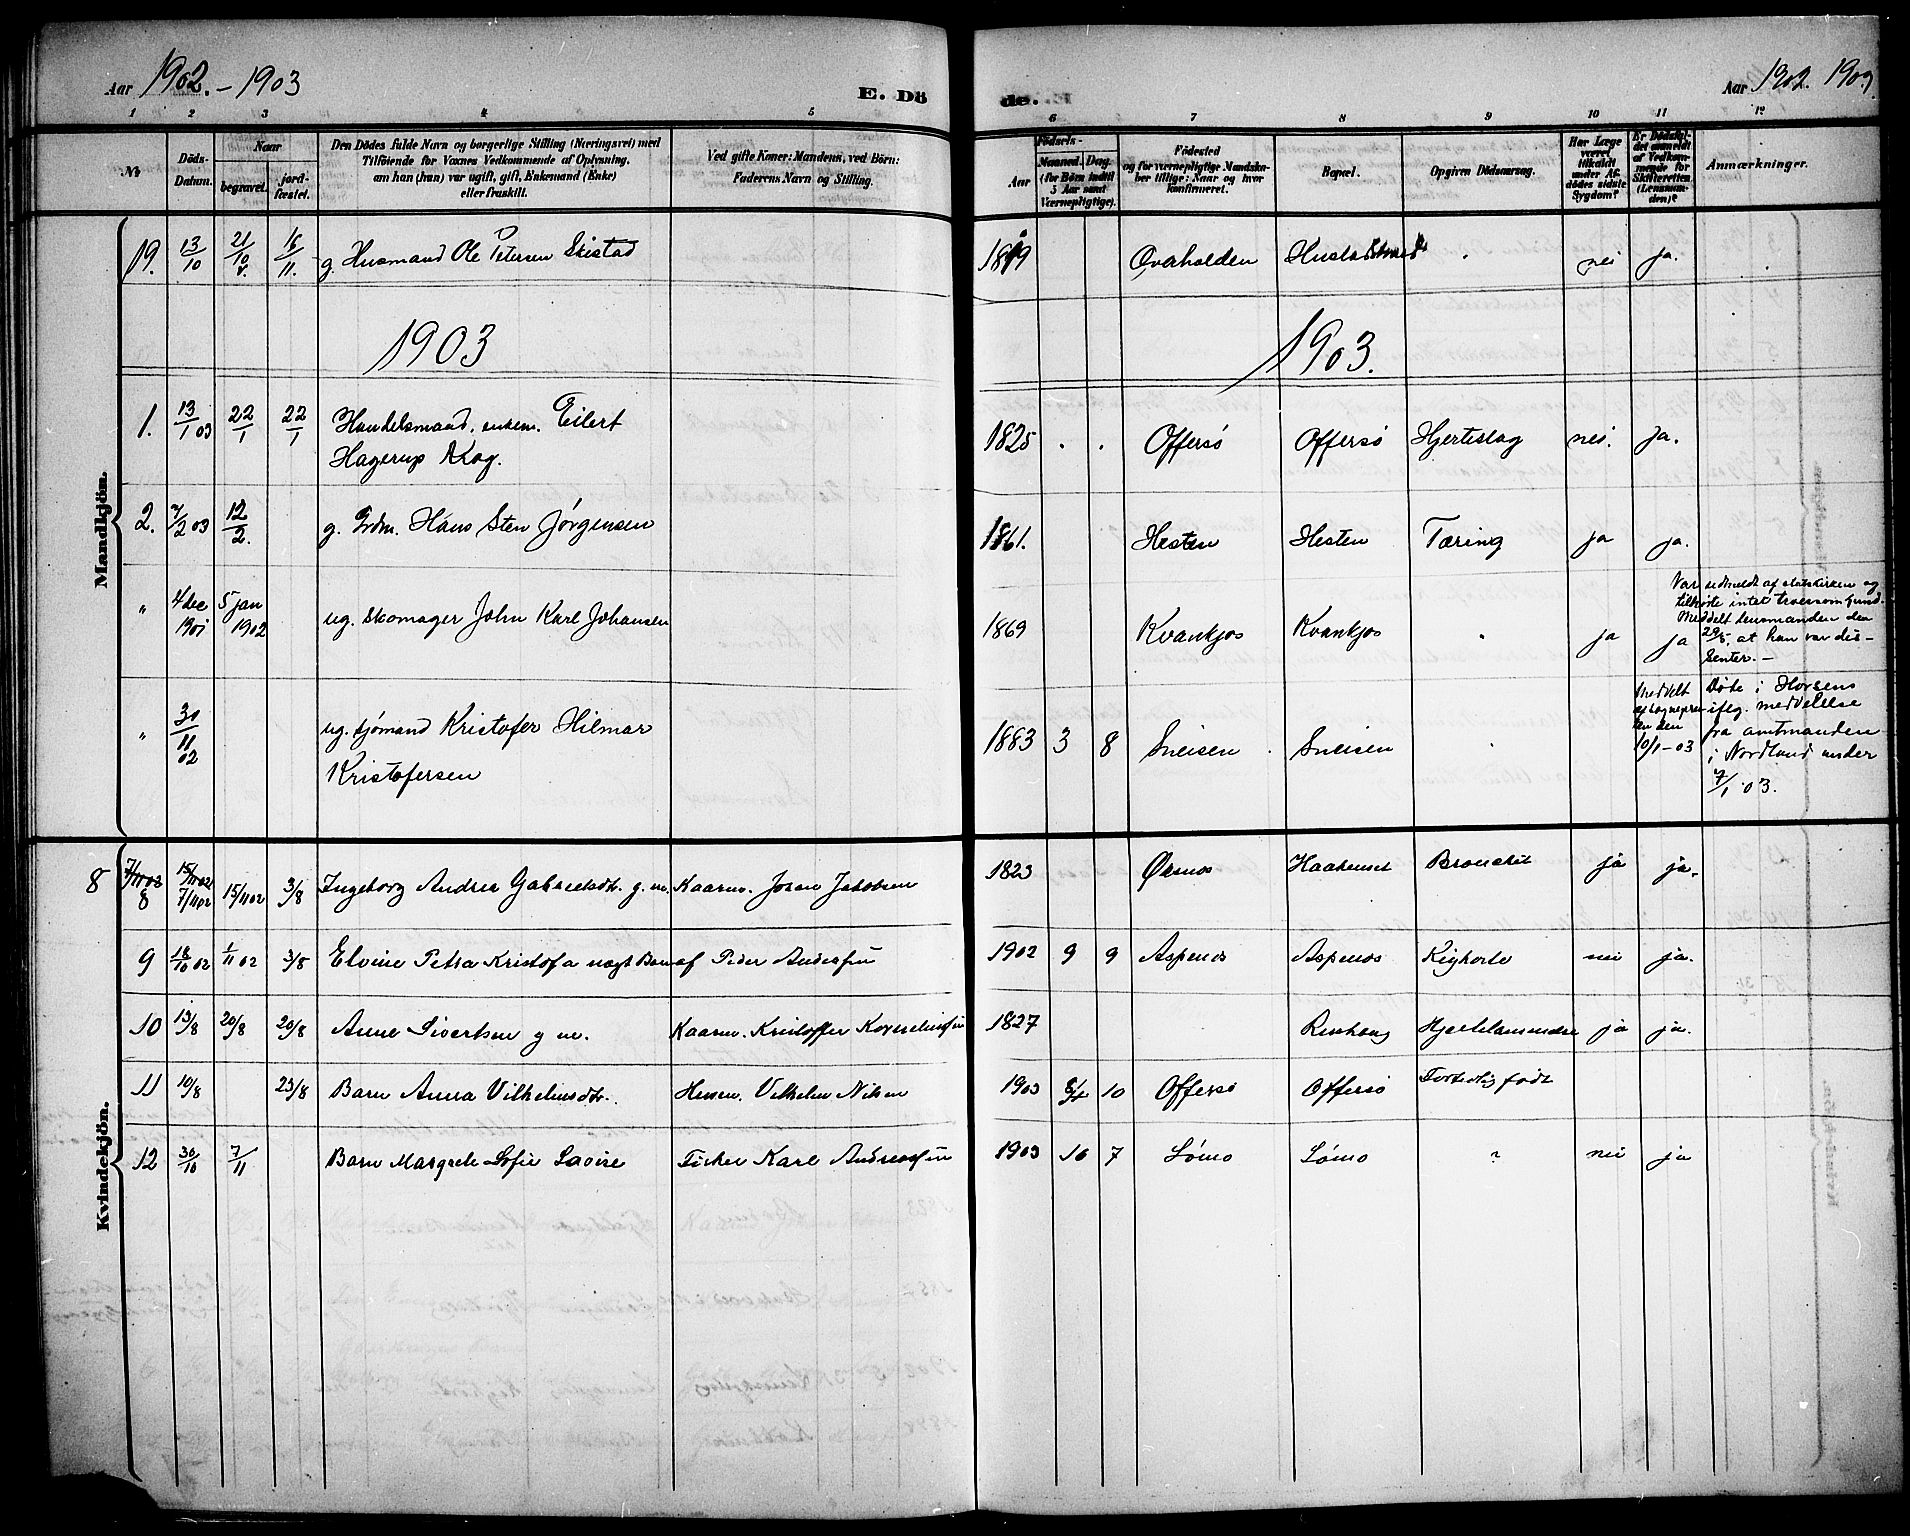 Aar 1902.-1903
E. Dö
de.
Aar 1902. 1903.
1 2 3 4 5 6 7 8 9 10 11 12
No
Döds-Datum.
Naar
begravet.
jord-fæstet.
Den Dödes fulde Navn og borgerlige Stilling (Næringsvei) med
Tilföiende for Voxnes Vedkommende af Oplysning,
om han (hun) var ugift, gift, Enkemand (Enke)
eller fraskilt.
Ved gifte Koner: Mandens, ved Börn:
Faderens Navn og Stilling.
Födsels-
Aar
Maaned. Dag.
(for Börn indtil
5 Aar samt
Værnepligtige).
Födested
og for værnepligtige Mandska-
ber tillige: Naar og hvor
konfirmeret.
Bopæl.
Opgiven Dödsaarsag.
Har Læge
været
tilkaldt
under Af-
dödes sidste
Sygdom?
Er Dödsfal-
det anmeldt
af Vedkom-
mende for
Skifteretten
(Lensman-
den)?
Anmærkninger.
Mandkjön.
19. 13/10 21/10 16/11. g. Husmand Ole Petersen Skistad Overhalden nei ja.
1903 1903.
1. 13/1 03 22/1 22/1 Handelsmand, enkem. Eilert
Hagerup Kog. 1825 . . Offersö Offersö Hjerteslag nei. ja.
2. 7/2 03 12/2. g. Grdm. Hans Sten Jørgensen 1861. Hesten Hesten Tæring ja ja.
" 4 dec 1901 5 jan 1902 ug. Skomager John Karl Johansen 1869 Kvankjos Kvankjos " ja ja
Var udmeldt af statskirken og
tilhörte intet troessamfund.
Meddelt lensmanden den
29/5, at han var dis-
senter. -
" 30/11 02 ug. sjømand Kristofer Hilmar
Kristofersen 1883 3 8 Sneisen Sneisen "
Meddelt
af sognepres-
ten den
10/1-03
Døde i Horsens
iflg. meddelelse
fra amtmanden
i Nordland under
7/1 03.
Kvindekjön.
8 7/11 02 8 15/11 02 7/11 02 15/11 02 3/8 Ingeborg Andrea Gabrielsdtr. g. m. Kaarm. Johan Jakobsen 1823 Øksnes Haakenset Bronchit ja ja.
9 18/10 02 1/11 02 3/8 Elvine Petra Kristofa uægt Barn af Peder Andersen 1902 9 9 Aspenes Aspenes Kighoste nei ja.
10 13/8 20/8 20/8 Anne Sivertsen g m. Kaarm. Kristoffer Korneliussen 1827 Hjertelammelse ja ja.
11 10/8 23/8 Barn Anna Vilhelmsdtr. Husm. Vilhelm Nilsen 1903 10 Offersö Offersö Fortidlig født
12 30/10 7/11 Barn Margrete Sofie Lovise Fisker Karl Andreassen 1903 10 7 Lømo Lømo ? nei ja